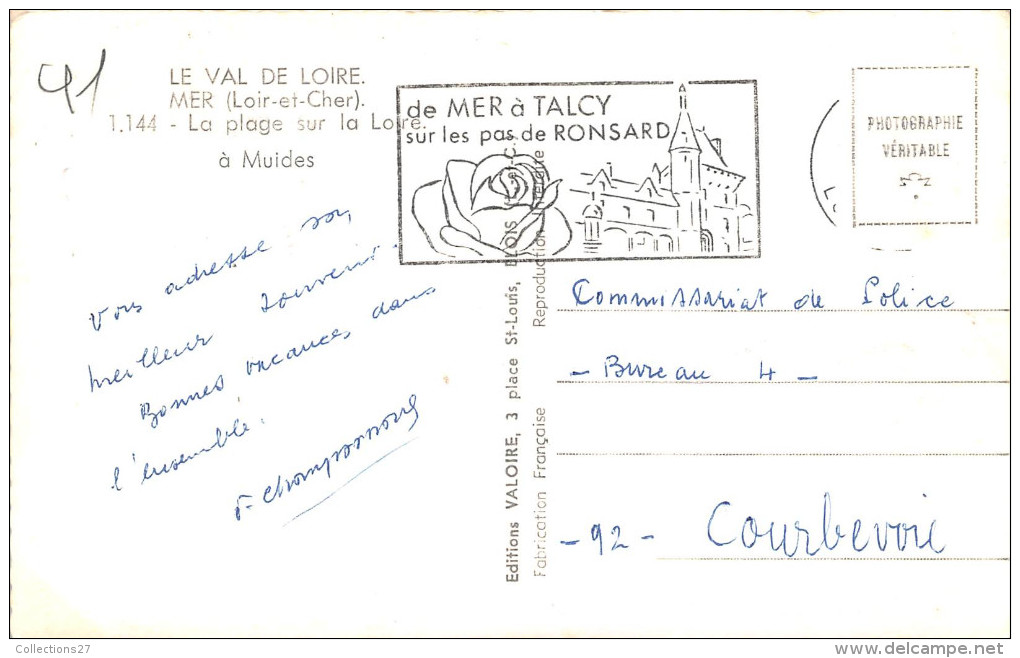 41
LE VAL DE LOIRE.
MER (Loir-et-Cher).
1.144 - La plage sur la Loire
à Muides
de MER à TALCY
sur les pas de RONSARD
PHOTOGRAPHIE
VÉRITABLE
Vous adresse son
meilleur souvenir.
Bonnes vacances dans
l'ensemble.
Editions VALOIRE, 3 place St-Louis, BLOIS (L.-&-C.)
Fabrication Française Reproduction Interdite
Commissariat de Police
- Bureau 4 -
- 92 - Courbevoie
Collections27
delcampe.net